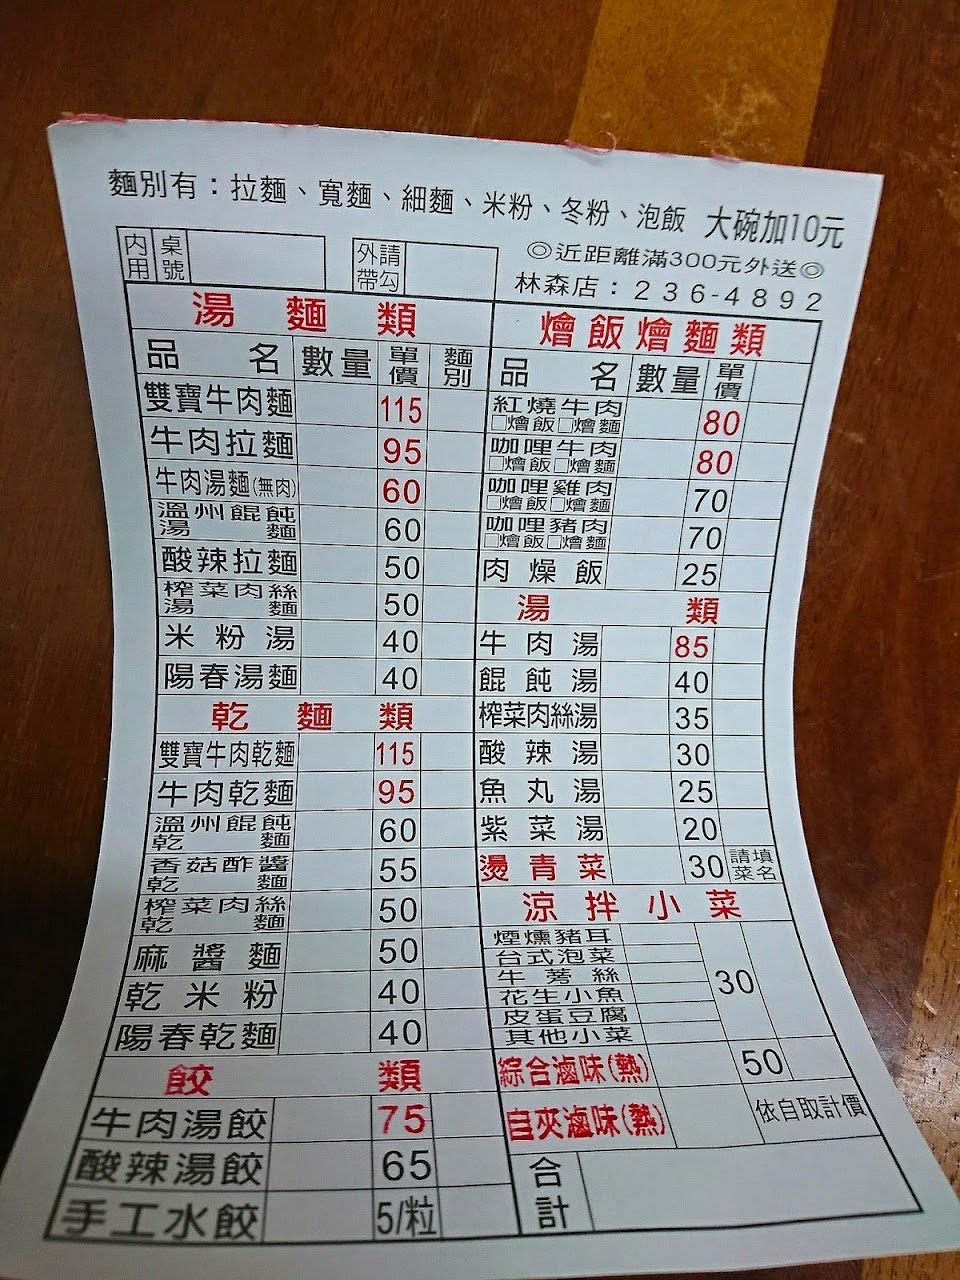 麵別有：拉麵、寬麵、細麵、米粉、冬粉、泡飯 大碗加10元
內用 桌號 外帶 請勾
◎近距離滿300元外送◎
林森店：236-4892
湯麵類
品名 數量 單價 麵別
雙寶牛肉麵 115
牛肉拉麵 95
牛肉湯麵(無肉) 60
溫州餛飩湯麵 60
酸辣拉麵 50
榨菜肉絲湯麵 50
米粉湯 40
陽春湯麵 40
乾麵類
雙寶牛肉乾麵 115
牛肉乾麵 95
溫州餛飩乾麵 60
香菇酢醬乾麵 55
榨菜肉絲乾麵 50
麻醬麵 50
乾米粉 40
陽春乾麵 40
餃類
牛肉湯餃 75
酸辣湯餃 65
手工水餃 5/粒
燴飯燴麵類
品名 數量 單價
紅燒牛肉 80
□燴飯□燴麵
咖哩牛肉 80
□燴飯□燴麵
咖哩雞肉 70
□燴飯□燴麵
咖哩豬肉 70
□燴飯□燴麵
肉燥飯 25
湯類
牛肉湯 85
餛飩湯 40
榨菜肉絲湯 35
酸辣湯 30
魚丸湯 25
紫菜湯 20
燙青菜 30 請填菜名
涼拌小菜
煙燻豬耳
台式泡菜
牛蒡絲
花生小魚
皮蛋豆腐
其他小菜
30
綜合滷味(熱) 50
自夾滷味(熱) 依自取計價
合計